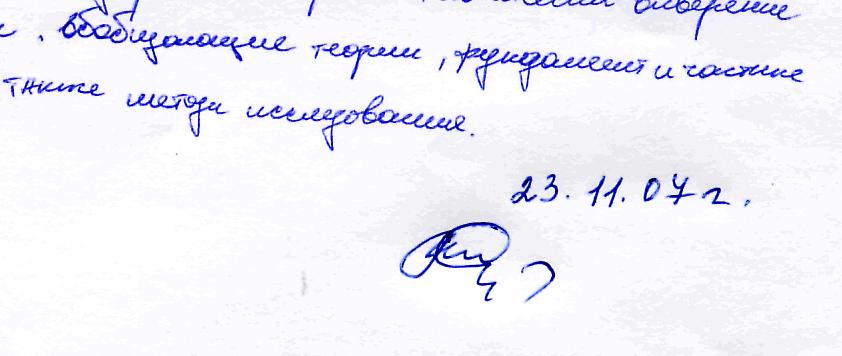 обобщающие теории, фундамент и частные
также методы исследования.
23.11.07 г.